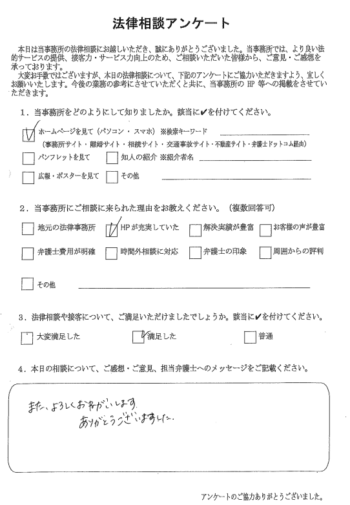 法律相談アンケート
本日は当事務所の法律相談にお越しいただき、誠にありがとうございました。当事務所では、より良い法
的サービスの提供、接客力・サービス力向上のため、ご相談いただいた皆様から、ご意見・ご感想を
承っております。
大変お手数ではございますが、本日の法律相談について、下記のアンケートにご協力いただきますよう、宜しく
お願いいたします。今後の業務の参考にさせていただくと共に、当事務所の HP 等への掲載をさせてい
ただきます。
1．当事務所をどのようにして知りましたか。該当に✓を付けてください。
ホームページを見て（パソコン・スマホ）※検索キーワード
（事務所サイト・離婚サイト・相続サイト・交通事故サイト・不動産サイト・弁護士ドットコム経由）
パンフレットを見て 知人の紹介 ※紹介者名
広報・ポスターを見て その他
2．当事務所にご相談に来られた理由をお教えください。（複数回答可）
地元の法律事務所 HPが充実していた 解決実績が豊富 お客様の声が豊富
弁護士費用が明確 時間外相談に対応 弁護士の印象 周囲からの評判
その他
3．法律相談や接客について、ご満足いただけましたでしょうか。該当に✓を付けてください。
大変満足した 満足した 普通
4．本日の相談について、ご感想・ご意見、担当弁護士へのメッセージをご記載ください。
また、よろしくおねがいします。
ありがとうございました。
アンケートのご協力ありがとうございました。